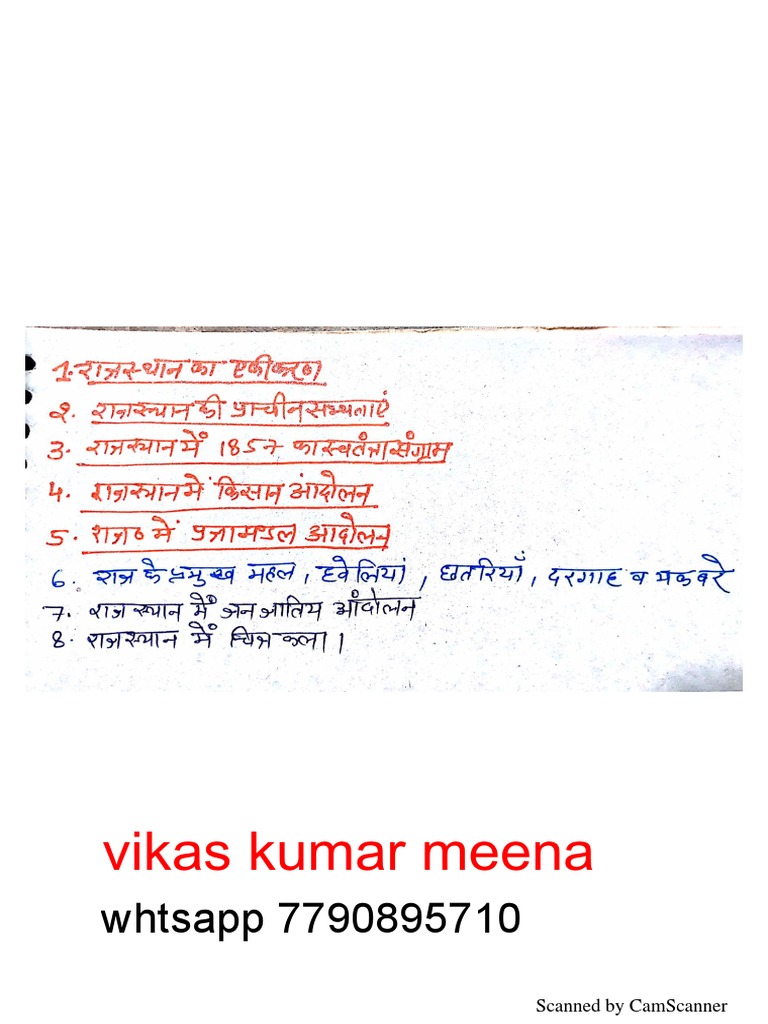 1. राजस्थान का एकीकरण
2. राजस्थान की प्राचीन सभ्यताएं
3. राजस्थान में 1857 का स्वतंत्रता संग्राम
4. राजस्थान मे किसान आंदोलन
5. राज० में प्रजामण्डल आदोलन
6. राज के प्रमुख महल, हवेलियां, छतरियाँ, दरगाह व मकबरे
7. राजस्थान में जनजातिय आंदोलन
8. राजस्थान में चित्रकला।
vikas kumar meena
whtsapp 7790895710
Scanned by CamScanner